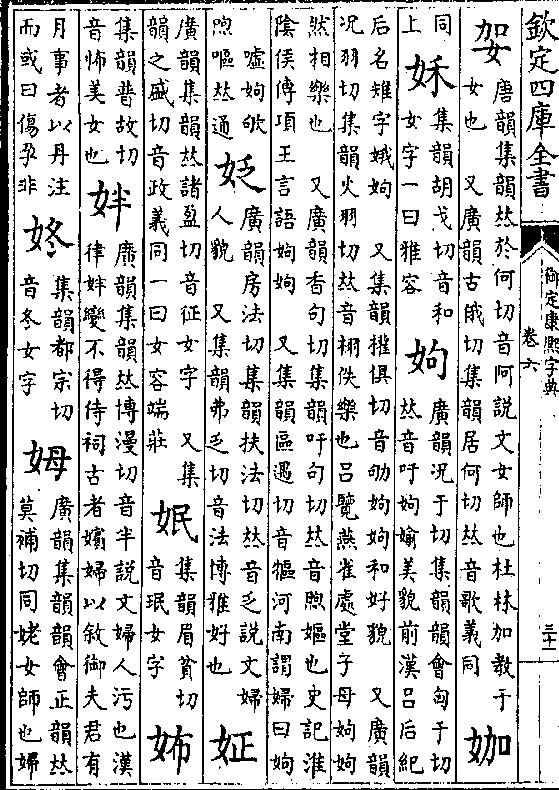 欽定四庫全書
御定康熙字典
卷六
三十一
妿
唐韻集韻𠀤於何切音阿說文女師也杜林加教于
女也 又廣韻古俄切集韻居何切𠀤音歌義同
㚙
同
上
𡛥
集韻胡戈切音和
女字一曰雅容
姁
廣韻况于切集韻韻會匈于切
𠀤音吁姁媮美貌前漢呂后紀
后名雉字娥姁 又集韻權俱切音劬姁姁和好貌 又廣韻
况羽切集韻火羽切𠀤音栩佚樂也呂覽燕雀處堂子母姁姁
然相樂也 又廣韻香句切集韻吁句切𠀤音煦嫗也史記淮
陰侯傳項王言語姁姁 又集韻區遇切音驅河南謂婦曰姁
嘘姁欨
煦嘔𠀤通
姂
廣韻房法切集韻扶法切𠀤音乏說文婦
人貌 又集韻弗乏切音法博雅好也
姃
廣韻集韻𠀤諸盈切音征女字 又集
韻之盛切音政義同一曰女容端莊
姄
集韻眉貧切
音珉女字
㚴
集韻普故切
音怖美女也
姅
廣韻集韻𠀤博漫切音半說文婦人污也漢
律姅變不得侍祠古者嬪婦以敘御夫君有
月事者以丹注
而或曰傷孕非
㚵
集韻都宗切
音冬女字
姆
廣韻集韻韻會正韻𠀤
莫補切同姥女師也婦